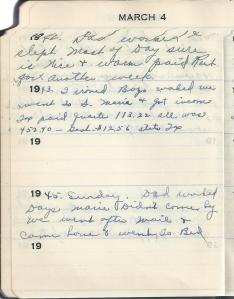 MARCH 4
1942. Dad worked &
slept Most of Day sure
is Nice & warm paid Rent
for another week.
1943. I ironed Boys waked we
went to S. Maria & got income
Tx paid Quarter 113.22 all was
452.90 - and $12.56 state Tx
19
1945. Sunday. Dad worked
Days. Marie Didn't come by
We went after Mail &
Came home & went to Bed
19